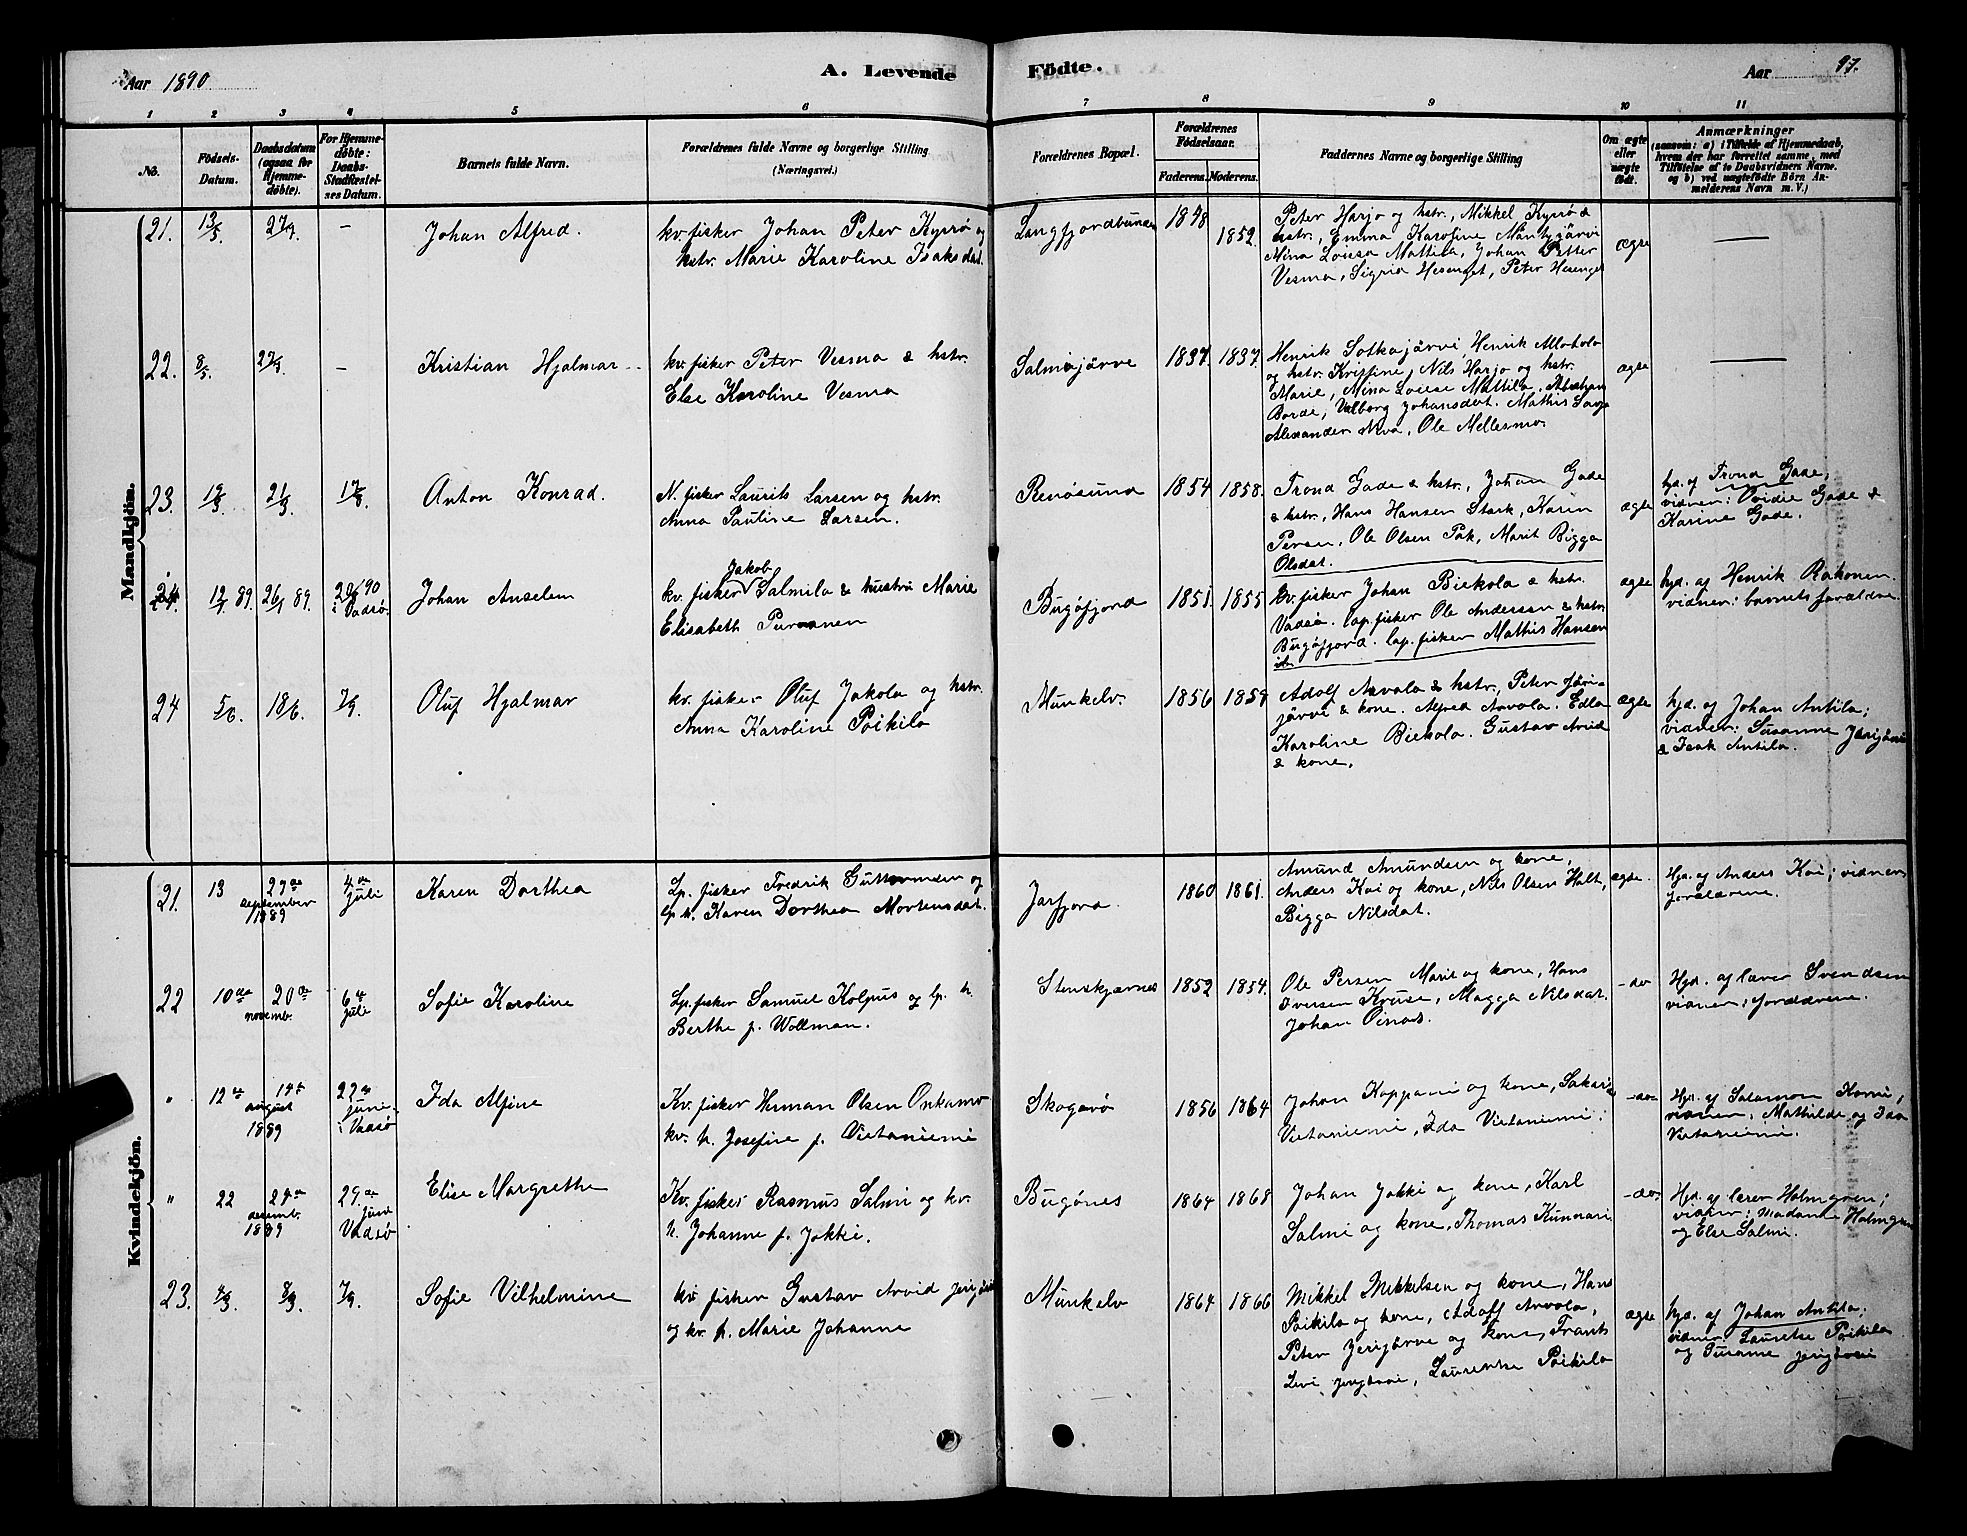 Aar 1890
A. Levende
Födte.
Aar
97.
1 2 3 4 5 6 7 8 9 10 11
No.
Födsels-
Datum.
Daabsdatum
(ogsaa for
Hjemme-
döbte).
For Hjemme-
döbte:
Daabs-
Stadfæstel-
ses Datum.
Barnets fulde Navn.
Forældrenes fulde Navne og borgerlige Stilling
(Næringsvei.)
Forældrenes Bopæl.
Forældrenes
Födselsaar.
Faderens. Moderens.
Faddernes Navne og borgerlige Stilling
Om ægte
eller
uægte
födt.
Anmærkninger
(saasom: a) i Tilfælde af Hjemmedaab,
hvem der har forrettet samme, med
Tilföielse af to Daabsvidners Navne,
og b) ved uægtefödte Börn An-
melderens Navn m. V.)
Mandkjön.
21.
27/7
–
Johan Alfred.
kv. fisker Johan Peter Kyrrø og
hstr. Marie Karoline Isaksdat.
Langfjordbunden
1848
1852.
Peter Harjo og hstr., Mikkel Kyrrø &
hstr., Emma Karoline Mäntyjärvi
Mina Lovisa Mattila, Johan Petter
Vesma, Sigrid Hesenget, Peter Hesenget
ægte
22.
8/5
–
Kristian Hjalmar
kv. fisker Peter Vesma & hstr.
Else Karoline Vesma
Salmijärve
1837 1837.
Henrik Sotkajärvi, Henrik Allatalo
og hstr. Kristine, Nils Harjo og hstr.
Marie, Mina Lovise Mattila, Abraham
Borde, Valborg Johansdat. Mathis
Alexander Niva, Ole Mellesmo.
ægte
23.
21/9
17/8
Anton Konrad.
N. fisker Laurits Larsen og hstr.
Anna Pauline Larsen.
Renøsund
1854 1858.
Trond Gade & hstr., Johan Gade
& hstr., Hans Hansen Stark, Karen
Persen, Ole Olsen Pak, Marit Bigga
Olsdat.
ægte
hjd. af Trond Gade,
vidner: Ovidie Gade &
Karine Gade.
24.
12/7 89. 26/7 89.
i Vadsø.
Johan Anselm
Jakob
kv. fisker Salmila & hustru Marie
Elisabeth Puranen
Bugøfjord
1851. 1855
kv. fisker Johan Biekola & hstr.
Vadsø. lap. fisker Ole Andersen & hstr.
Bugøfjord. lap. fisker Mathis Hansen
ægte
hjd. af Henrik Raikonen.
vidner: barnets forældre.
24
5/6. 18/6. 7/9.
Oluf Hjalmar
kv. fisker Oluf Jakola og hstr.
Anna Karoline Poikila
Munkelv.
1856 1859
Adolf Arvola & hstr., Peter Jeri-
järvi & kone. Alfred Arvola. Edla
Karoline Biekola. Gustav Arvid
& kone.
ægte
hjd. af Johan Antila;
vidner: Susanne Jerijärvi
& Isak Antila.
Kvindekjön.
21.
13 27de
september
1889
4de
juli
Karen Dorthea
Lp. fisker Fredrik Guttormsen og
lp. h. Karen Dorthea Mortensdat.
Jarfjord.
1860 1861.
Amund Amundsen og kone,
Anders Kai og kone, Nils Olsen Holt,
Bigga Nilsdat.
ægte.
Hjd. af Anders Kai; vidner
forældrene.
22
10de 20de
novemb.
6te
juli
Sofie Karoline
Lp. fisker Samuel Kolpus og lp. h.
Berthe f. Wollman.
Stenskjærnes
1852 1854.
Ole Persen Marit og kone, Hans
Iversen Kruse, Magga Nilsdat.
Johan Oinas.
-do
Hjd. af lærer Svendsen
vidner: forældrene.
"
12te 14de
august
1889
22de
juni
i Vadsø
Ida Alfine
Kv. fisker Herman Olsen Onkamo
kv. h. Josefine f. Vietaniemi
Skogerø
1856 1864
Johan Kappanie og kone, Sakari
Vietaniemi, Ida Vietaniemi:
-do-
Hjd. af Salamon
vidner: Mathilde og Ida
Vietaniemi.
"
22 24de
desemb.
1889
29de
juni
Vadsø
Elise Margrethe
Kv. fisker Rasmus Salmi og kv.
h. Johanne f. Jokki.
Bugønes
1864 1868
Johan Jokki og kone, Karl
Salmi og kone, Thomas Kunnari
-do.
Hjd. af lærer Holmgren;
vidner: Madame Holmgren
og Else Salmi.
23.
4/3. 8/3. 7/9.
Sofie Vilhelmine
kv fisker Gustav Arvid Jerijärvi
og kv. h. Marie Johanne
Munkelv
1864 1866
Mikkel Mikkelsen og kone, Hans
Poikila og kone, Adolf Arvola,
Peter Jerijärve og kone, Frants
Levi Jerijärvi, Laurentse Poikila
ægte
hjd. af Johan Antila:
vidner Lauretse Poikila
og Susanne Jerijärvi